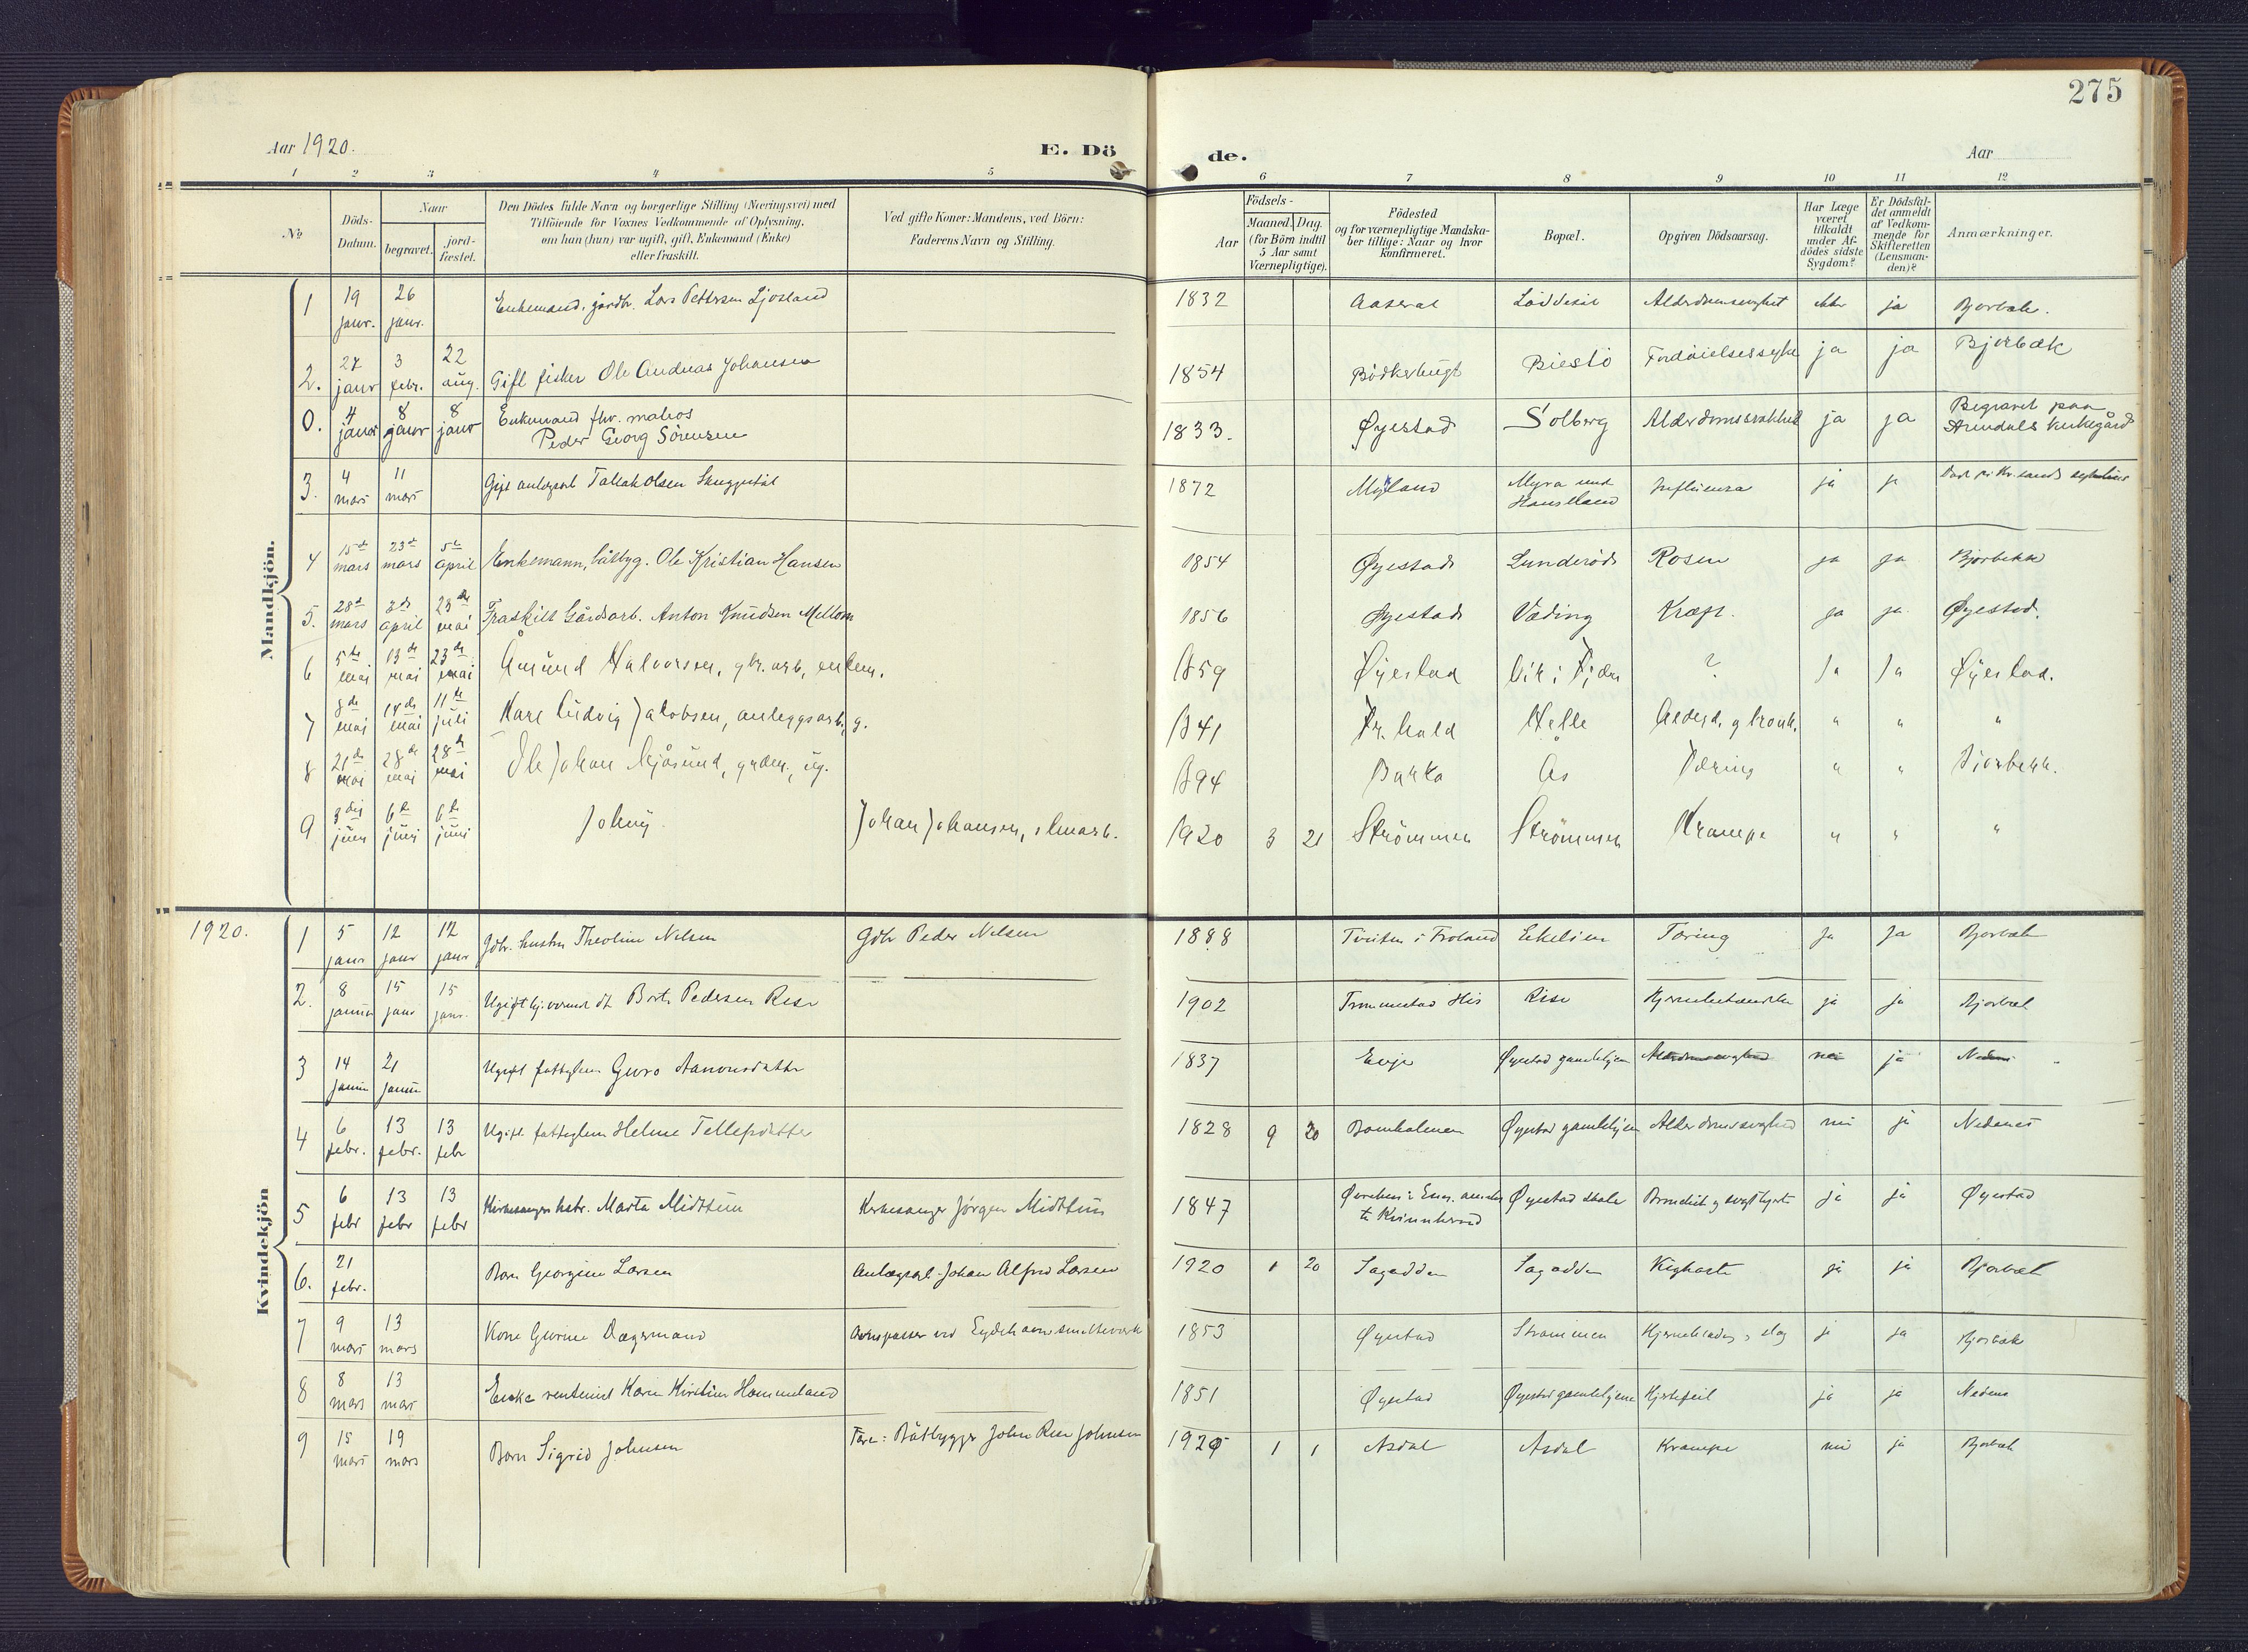 275
Aar 1920.
E. Dö
de.
Aar
1 2 3 4 5 6 7 8 9 10 11 12
No
Döds-Datum.
Naar
begravet.
jord-fæstet.
Den Dödes fulde Navn og borgerlige Stilling (Næringsvei) med
Tilföiende for Voxnes Vedkommende af Oplysning,
om han (hun) var ugift, gift, Enkemand (Enke)
eller fraskilt.
Ved gifte Koner: Mandens, ved Börn:
Faderens Navn og Stilling.
Födsels-
Aar
Maaned. Dag.
(for Börn indtil
5 Aar samt
Værnepligtige).
Födested
og for værnepligtige Mandska-
ber tillige: Naar og hvor
konfirmeret.
Bopæl.
Opgiven Dödsaarsag.
Har Læge
været
tilkaldt
under Af-
dödes sidste
Sygdom?
Er Dödsfal-
det anmeldt
af Vedkom-
mende for
Skifteretten
(Lensman-
den)?
Anmærkninger.
Mandkjön.
1 19 janr. 26 janr. Enkemand, gardbr. Lars Pettersen Ljosland 1832 Aaseral Alderdomssvaghet ja Bjorbæk.
2. 27 janr 3 febr. 22 aug. Gift fisker Ole Andreas Johansen 1854 Bödkerbugt Biestö Fordöielsessyke ja ja Bjorbæk
0. 4 janr 8 janr 8 janr Enkemand fhv. matros
Peder Georg Sörensen 1833. Øyestad Solberg Alderdomssvakhet ja ja Begravet paa
Arendals kirkegård
3. 4 mars 11 mars Gift anlægsarb Tallak Olsen 1872 Mykland Myra Influenza ja ja
4 15de mars 23de mars 5te april Enkemann, båtbyg. Ole Kristian Hansen 1854 Øyestad Lunderöd Rosen ja ja Bjorbekk
5. 28de mars 3de april 23de mai Fraskilt Gårdsarb. Anton Knudsen Mellom 1856 Øyestad Væding Kræft. ja ja Øyestad.
6 5te mai 13de mai 23de mai Åmund Halvorsen, gbr. arb, enkem. 1859 Øyestad Vik i Fjære ? Ja Ja Öyestad.
7 8de mai 14de mai 11te juli Karl Ludvig Jakobsen, anleggsarb, g. 1841 Fr. hald Helle Alderd. g bronk. " " "
8 21de mai 28de mai 28de mai Ole Johan Mjåsund, ug. 1894 Bakka Ås Tæring " " Bjorbekk.
9 3dje juni 6te juni 6te juni Johny Johan Johansen, 1920 3 21 Strömmen Strömmen Krampe " " "
1920.
Kvindekjön
1 5 janr 12 janr 12 janr Gdbr. hustru Theoline Nelsen Gdbr Peder Nelsen 1888 Tveiten i Froland Ekelien Tæring ja ja Bjorbæk
2. 8 januar 15 janr 15 janr. Ugift hj.værende dt Berte Pedersen Rise 1902 Trommestad His Rise ja ja Bjorbæk
3 14 janu 21 janu Ugift fattiglem Guro Aanonsdatter 1837 Evje Øyestad gamlehjem Alderdomssvaghed nei ja Nedenes
4 6 febr. 13 febr. 13 febr Ugift fattiglem Helene Tellefsdatter 1828 9 20 Bomholmen Øyestad gamlehjem Alderdomssvaghed nei ja Nedenes
5 6 febr 13 febr 13 febr Kirkesanger hstr. Marta Midttun Kirkesanger Jörgen Midttun 1847 Øyestad skole ja ja Øyestad
6. 21 febr. Barn Georgine Larsen Anlægsarb. Johan Alfred Larsen 1920 1 20 Sagodden Sagodden Kighoste ja ja Bjorbæk
7 9 mars 13 mars Kone Gurine Dægermand Ovnspasser ved Eydehavn smelteverk 1853 Øyestad Strømmen ja ja Bjorbæk
8 8 mars 13 mars Enke Karen Kirstine Hammeland 1851 Øyestad Øyestad gamlehjem Hjertefeil ja ja Nedenes
9 15 mars 19 mars Barn Sigrid Johnsen Far: Båtbygger John Rise Johnsen 1920 1 1 Asdal Asdal Krampe nei ja Bjorbæk